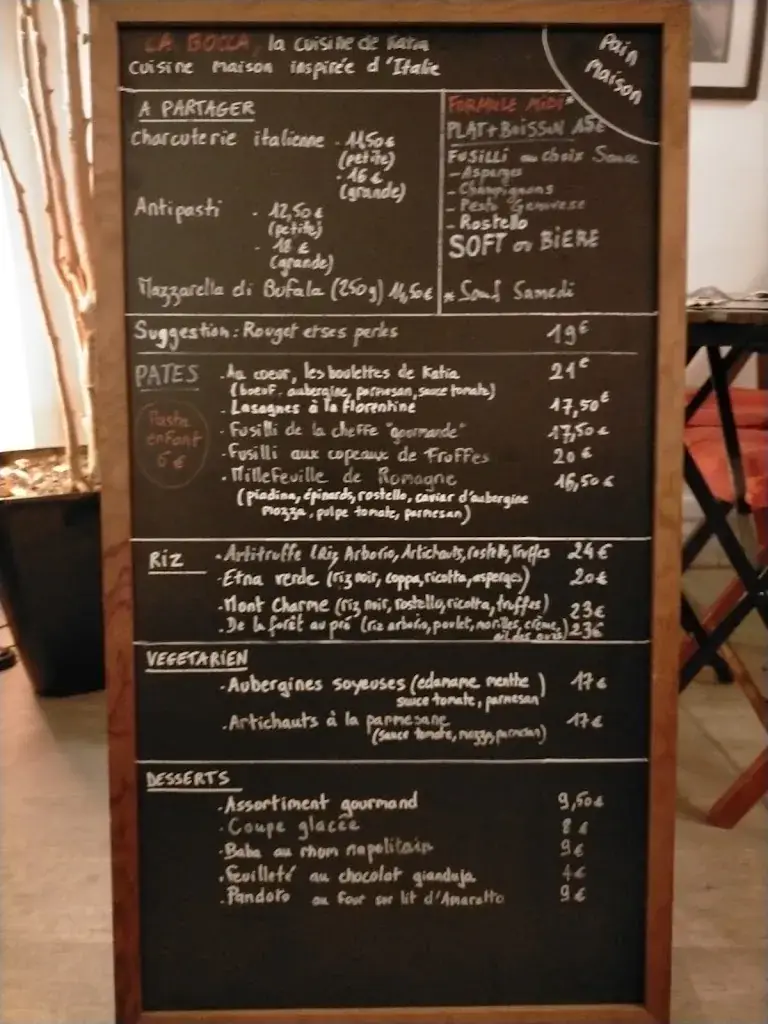 LA BOCCA, la cuisine de Katia
Cuisine Maison inspirée d'Italie
Pain
Maison
A PARTAGER
Charcuterie italienne - 11,50€
(petite)
- 16 €
(grande)
Antipasti - 12,50 €
(petite)
- 18 €
(grande)
Mazzarella di Bufala (250g) 14,50€
FORMULE MIDI*
PLAT+BOISSON 15€
FUSILLI au choix Sauce
- Asperges
- Champignons
- Pesto Genovese
- Rostello
SOFT ou BIERE
* Sauf Samedi
Suggestion: Rouget et ses perles 19€
PATES
Pasta
enfant
6 €
. Au coeur, les boulettes de Katia 21€
(boeuf, aubergine, parmesan, sauce tomate)
. Lasagnes à la florentine 17,50€
. Fusilli de la cheffe "gourmande" 17,50€
. Fusilli aux copeaux de Truffes 20 €
. Millefeuille de Romagne 16,50 €
(piadina, épinards, rostello, caviar d'aubergine
mozza, pulpe tomate, parmesan)
RIZ
. Artitruffe (Riz Arborio, Artichauts, rostello, truffes 24€
. Etna verde (riz noir, coppa, ricotta, asperges) 20€
. Mont Charme (riz noir, rostello, ricotta, truffes) 23€
. De la forêt au pré (riz arborio, poulet, morilles, crème, 23€
ail des ours)
VEGETARIEN
. Aubergines soyeuses (edamame menthe ) 17€
sauce tomate, parmesan
. Artichauts à la parmesane 17€
(sauce tomate, mozza, parmesan)
DESSERTS
. Assortiment gourmand 9,50€
. Coupe glacée 8 €
. Baba au rhum napolitain 9€
. Feuilleté au chocolat gianduja 4€
. Pandoro au four sur lit d'Amaretto 9€